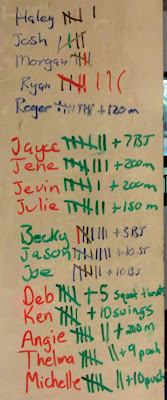 Haley 𝍸 |
Josh 𝍸
Morgan 𝍸
Ryan 𝍸 | | |
Roger 𝍸 𝍸 +120m
Jayce 𝍸 || +7BJ
Jene 𝍸 ||| +200m
Jevin 𝍸 | +200m
Julie 𝍸 || +150m
Becky 𝍸 ||| +3BJ
Jason 𝍸 ||| +10
Joe 𝍸 || +10BJ
Deb 𝍸 +5 Squat thrusts
Ken 𝍸 +10 swings
Angie 𝍸 || +200m
Thelma 𝍸 || +9 push
Michelle 𝍸 || +10 push